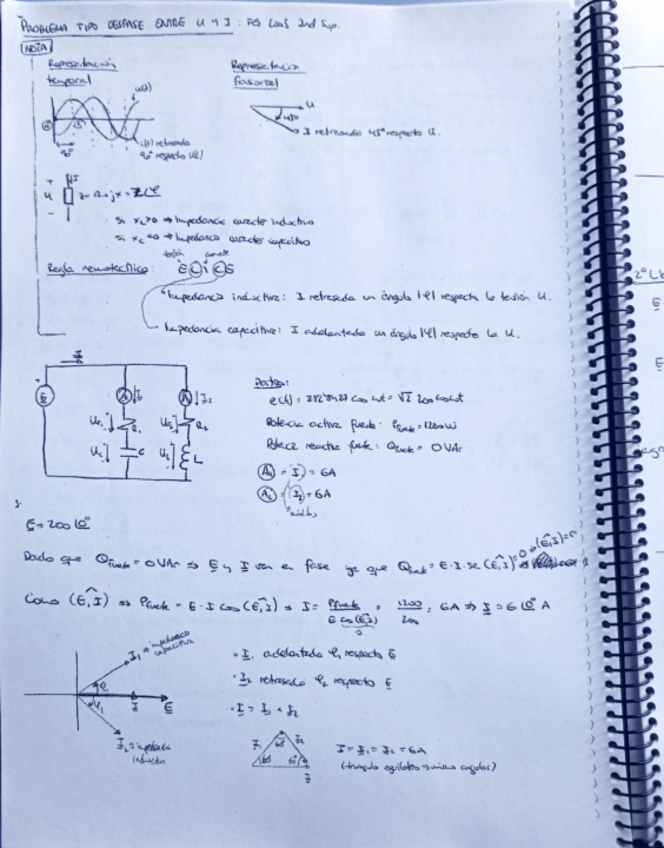 PROBLEMA TIPO DESFASE ENTRE U Y I:
NOTA
Representación temporal
Representación fasorial
u(t)
i(t) retrasada
90° respecto u(t)
90°
U
45°
I retrasada 45° respecto U.
+
U
-
I
si XL>0 ⇒ Impedancia caracter inductivo
si XC<0 ⇒ Impedancia caracter capacitivo
tensión
corriente
Regla nemotécnica: E L I C E
Impedancia inductiva: I retrasada un ángulo |φ| respecto la tensión U.
Impedancia capacitiva: I adelantada un ángulo |φ| respecto la U.
E
I
A
I1
A
I2
R1
R2
C
L
Datos:
Potencia activa fuente: Pfuente = 1200 W
Potencia reactiva fuente: Qfuente = 0 VAr
A1 = I1 = 6A
A2 = I2 = 6A
E = 200 |0°
Dado que Qfuente = 0 VAr ⇒ E y I van en fase ya que Qfuente = E·I·sen(E,I)
Como (E,I) ⇒ Pfuente = E·I cos(E,I) ⇒ I = Pfuente / E cos(E,I) = 1200/200 = 6A ⇒ I = 6 |0° A
I1 ⇒ impedancia capacitiva
I
E
I2 ⇒ impedancia inductiva
· I1 adelantada φ1 respecto E
· I2 retrasada φ2 respecto E
· I = I1 + I2
I1
I2
60°
60°
60°
I
I = I1 = I2 = 6A
(triangulo equilatero ⇒ mismos angulos)
2°
E
E